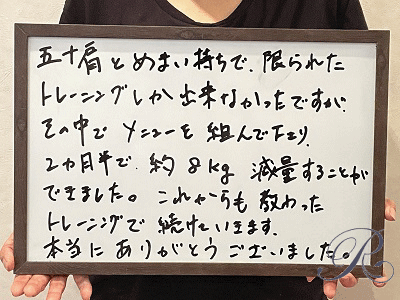 五十肩とめまい持ちで、限られた
トレーニングしか出来なかったですが、
その中でメニューを組んでたより、
2ヵ月半で、約8kg 減量することが
できました。これからも教わった
トレーニングで続けていきます。
本当にありがとうございました。
R